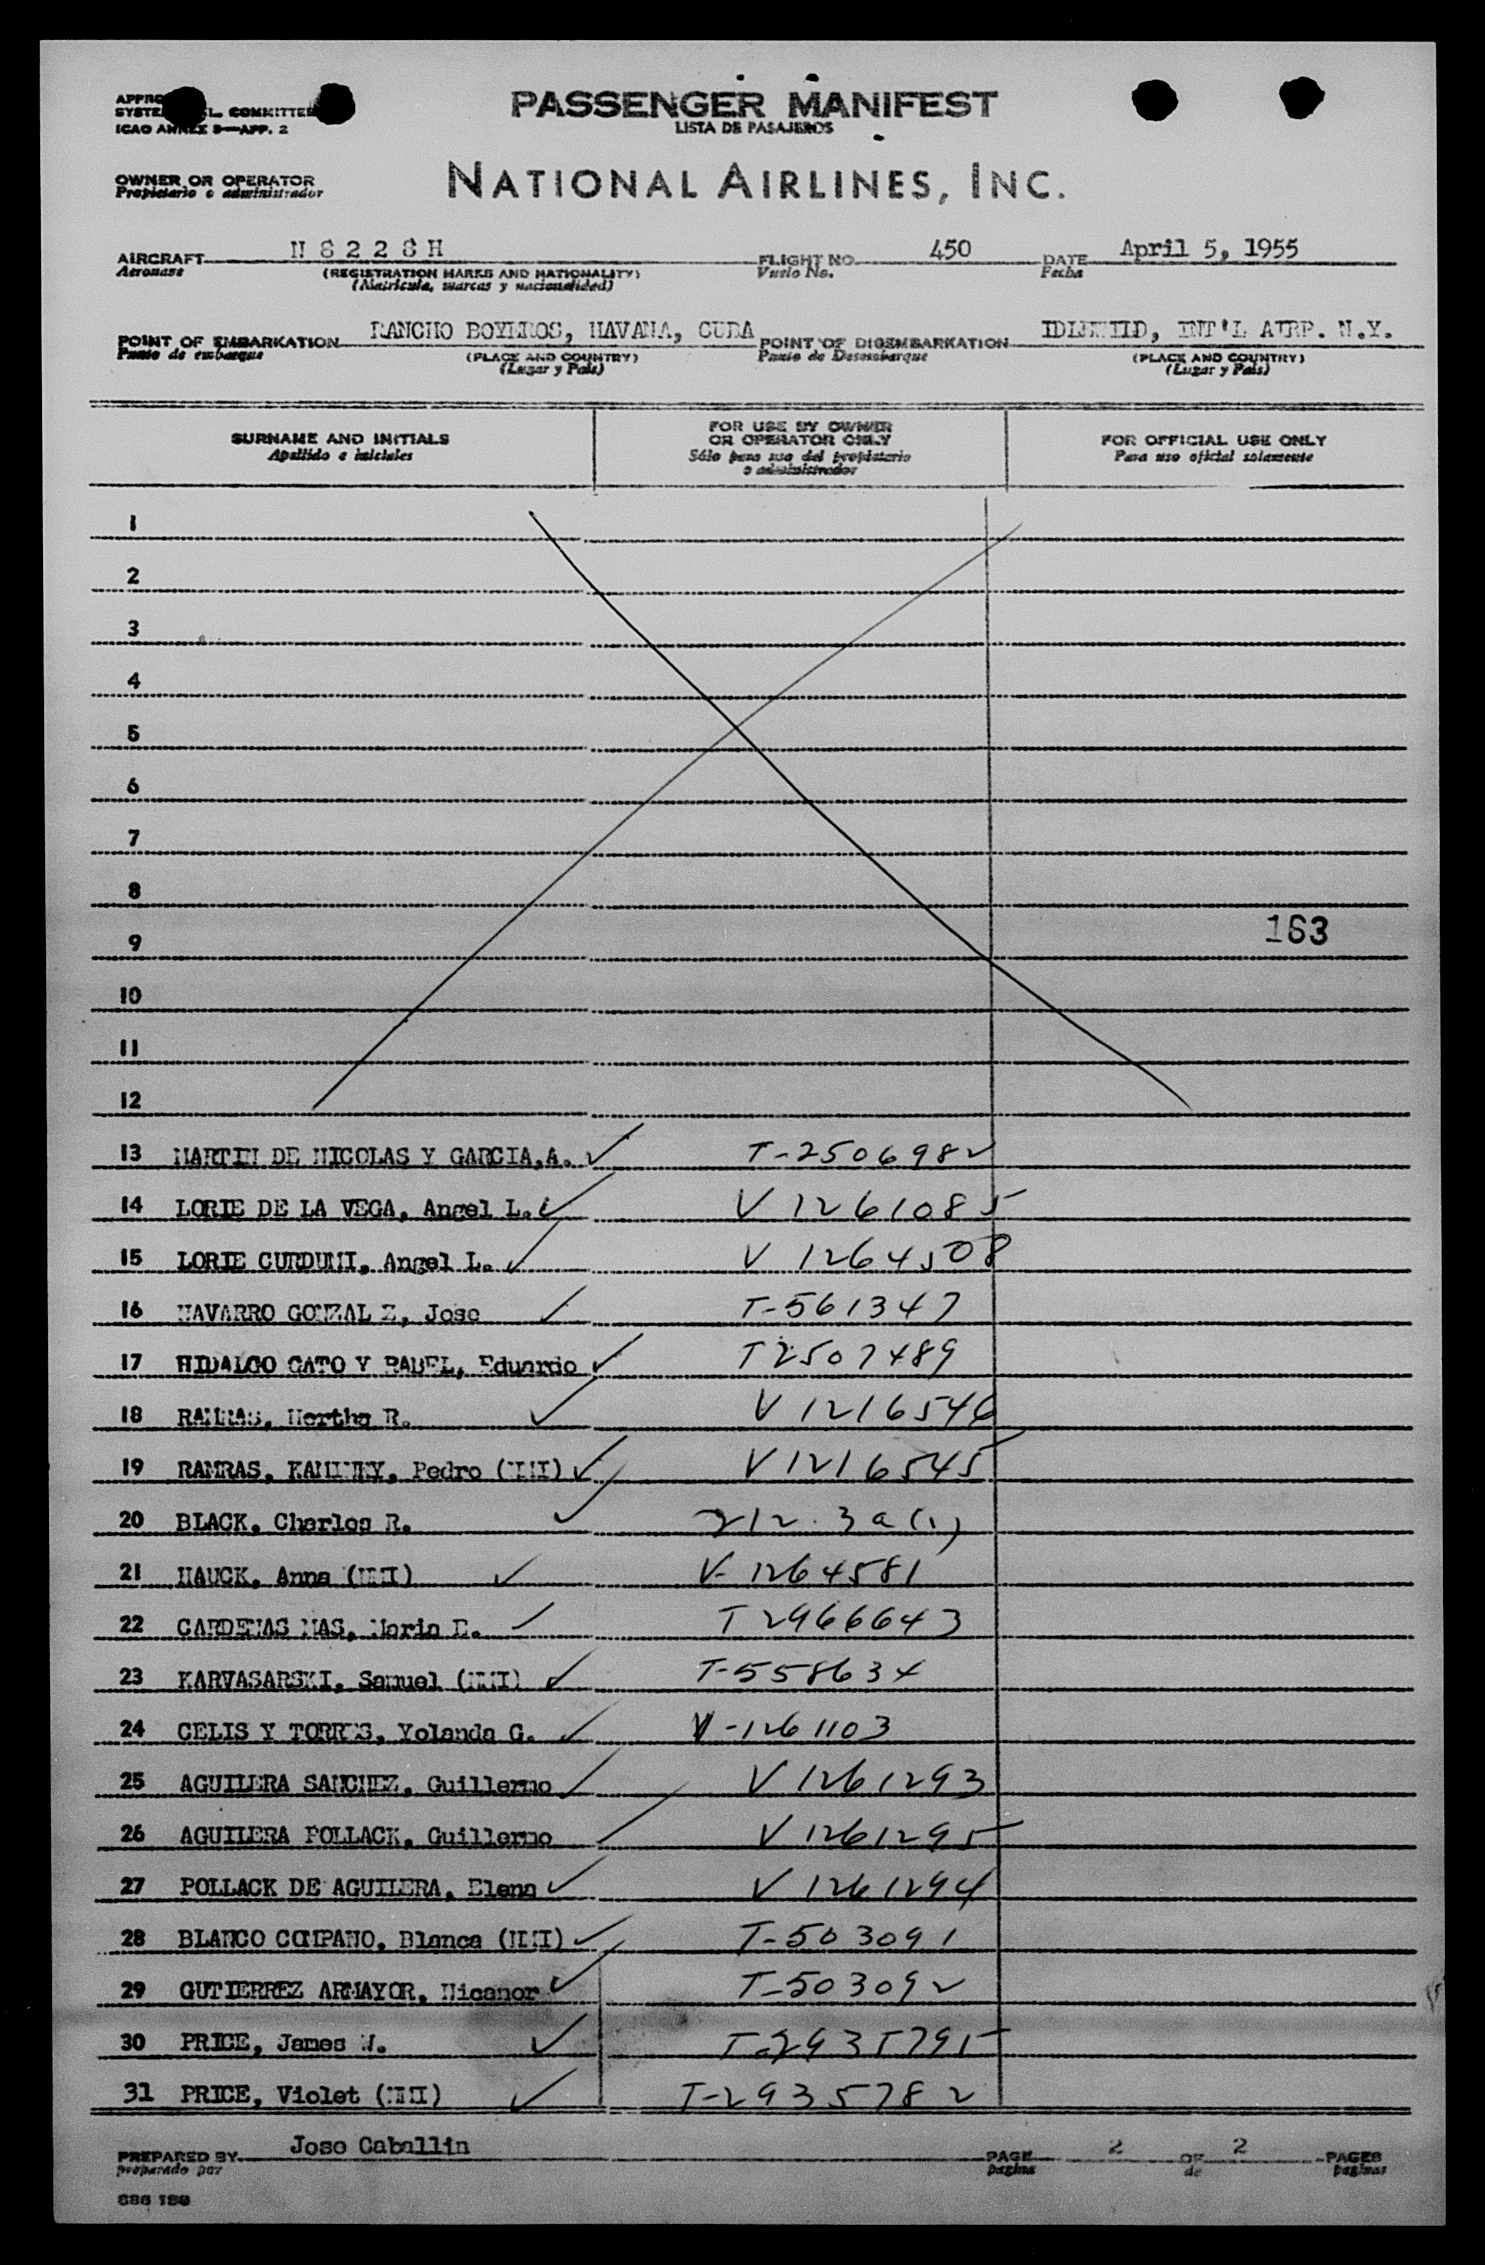 PASSENGER MANIFEST
LISTA DE PASAJEROS
COMMITTEE
ICAO ANNEX 9—APP. 2
OWNER OR OPERATOR
Propietario o administrador
NATIONAL AIRLINES, INC.
AIRCRAFT N 8 2 2 8 H FLIGHT NO. 450 DATE April 5, 1955
Aeronave (REGISTRATION MARKS AND NATIONALITY) Vuelo No. Fecha
(Matricula, marcas y nacionalidad)
POINT OF EMBARKATION RANCHO BOYEROS, HAVANA, CUBA POINT OF DISEMBARKATION IDLEWILD, INT'L AIRP. N.Y.
Punto de embarque (PLACE AND COUNTRY) Punto de Desembarque (PLACE AND COUNTRY)
(Lugar y País) (Lugar y País)
SURNAME AND INITIALS FOR USE BY OWNER OR OPERATOR ONLY FOR OFFICIAL USE ONLY
Apellido e iniciales Sólo para uso del propietario o administrador Para uso oficial solamente
1
2
3
4
5
6
7
8
9 163
10
11
12
13 MARTIN DE NICOLAS Y GARCIA, A. T-2506982
14 LORIE DE LA VEGA, Angel L. V 1261085
15 LORIE CURDUMI, Angel L. V 1264508
16 NAVARRO GONZAL Z, Jose T-561347
17 HIDALGO GATO Y RABEL, Eduardo T 2507489
18 RAMRAS, Hertha R. V 1216546
19 RAMRAS, Pedro (NMI) V 1216545
20 BLACK, Charles R. 212.3a(1)
21 HAUCK, Anna (NMI) V-1264581
22 CARDENAS MAS, Maria E. T 2966643
23 KARVASARSKI, Samuel (NMI) T-558634
24 CELIS Y TORRES, Yolanda G. V-1261103
25 AGUILERA SANCHEZ, Guillermo V 1261293
26 AGUILERA POLLACK, Guillermo V 1261295
27 POLLACK DE AGUILERA, Elena V 1261294
28 BLANCO COMPANO, Blanca (NMI) T-503091
29 GUTIERREZ ARMAYOR, Nicanor T-503092
30 PRICE, James W. T-2935795
31 PRICE, Violet (NMI) T-2935782
PREPARED BY Jose Caballin PAGE 2 OF 2 PAGES
preparado por pagina de paginas